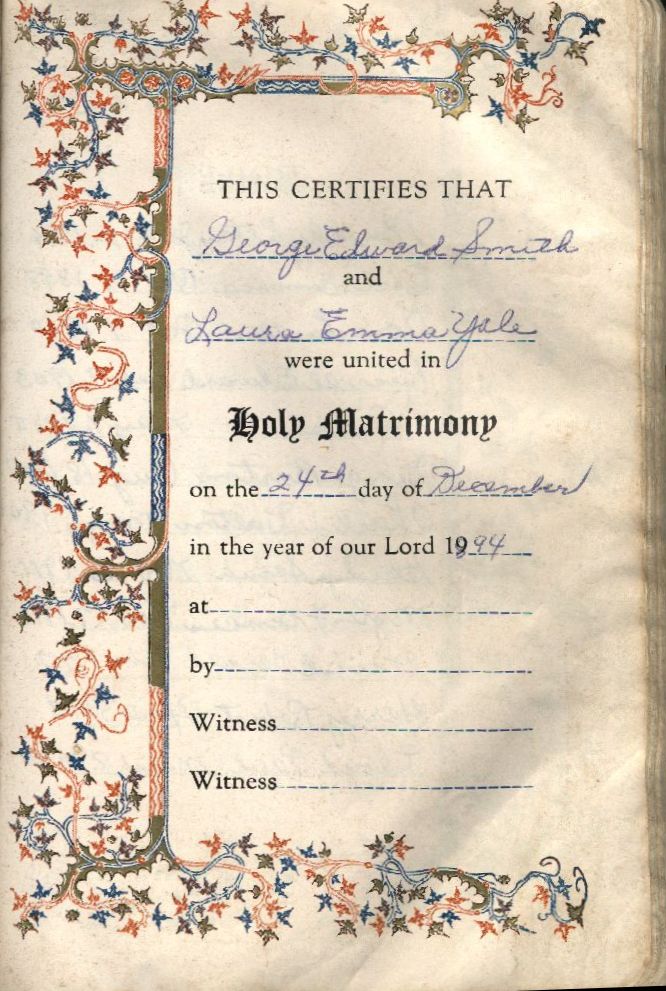 THIS CERTIFIES THAT
George Edward Smith
and
Laura Emma Yale
were united in
Holy Matrimony
on the 24th day of December
in the year of our Lord 1894
at
by
Witness
Witness